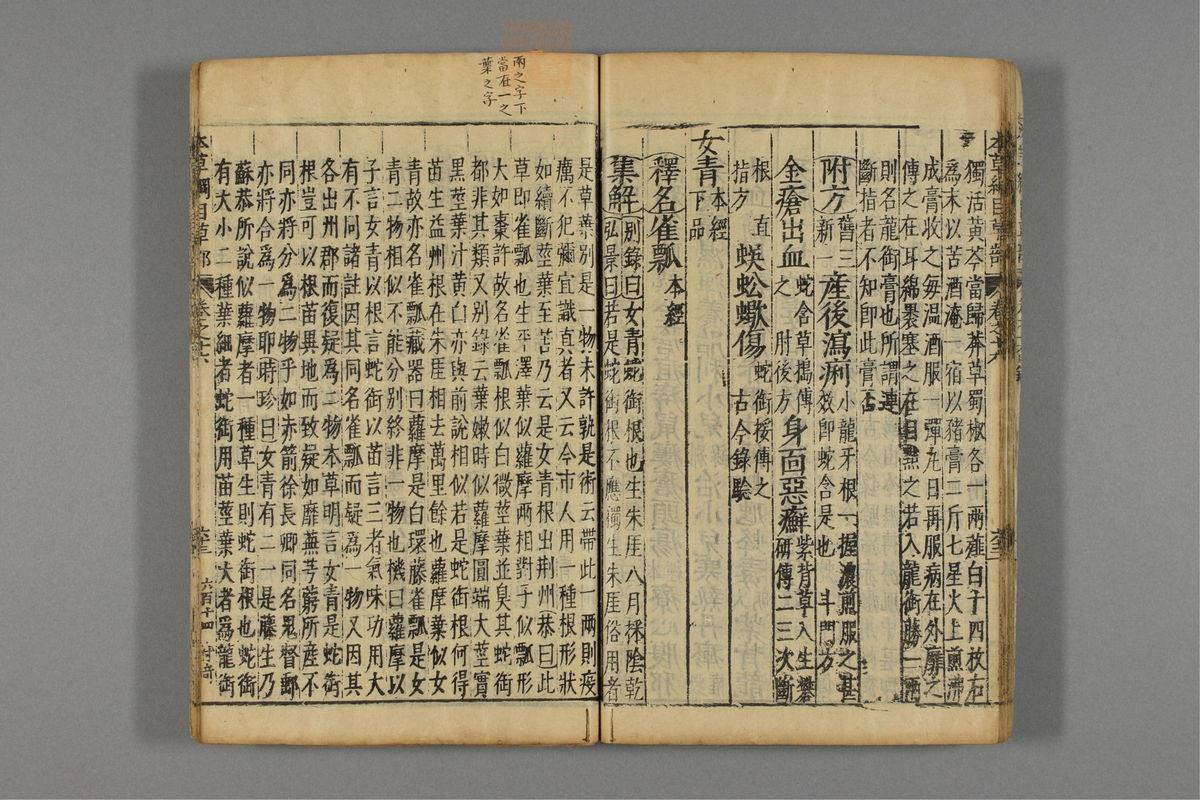 本草綱目草部
卷之十六
獨活黃芩當歸莽草蜀椒各一兩薤白十四枚右
爲末以苦酒淹一宿以豬膏二斤七星火上煎沸
成膏收之每溫酒服一彈丸日再服病在外靡之
傅之在耳綿裹塞之在目點之若入龍銜膽一兩
則名龍銜膏也所謂連
斷指者不知即此膏否
附方舊三新一產後瀉痢小龍牙根一握濃煎服之甚效即蛇含是也 斗門方
金瘡出血蛇含草搗傅之 肘後方身面惡癬紫背草入生礬研傅二三次斷
根 直指方蜈蚣蠍傷蛇銜挼傅之 古今錄驗
女青本經下品
釋名雀瓢本經
集解別錄曰女青蛇銜根也生朱厓八月採陰乾
弘景曰若是蛇銜根不應獨生朱厓俗用者
是草葉別是一物未許孰是術云帶此一兩則疫
癘不犯彌宜識真者又云今市人用一種根形狀
如續斷莖葉至苦乃云是女青根出荆州恭曰此
草即雀瓢也生平澤葉似蘿摩兩相對子似瓢形
大如棗許故名雀瓢根似白微莖葉並臭其蛇銜
都非其類又別錄云葉嫩時似蘿摩圓端大莖實
黑莖葉汁黃白亦與前說相似若是蛇銜根何得
苗生益州根在朱厓相去萬里餘也蘿摩葉似女
青故亦名雀瓢藏器曰蘿摩是白環藤雀瓢是女
青二物相似不能分別終非一物也機曰蘿摩以
子言女青以根言蛇銜以苗言三者氣味功用大
有不同諸註因其同名雀瓢而疑爲一物又因其
各出州郡而復疑爲二物本草明言女青是蛇銜
根豈可以根苗異地而致疑如靡蕪芎藭所產不
同亦將分爲二物乎如赤箭徐長卿同名鬼督郵
亦將合爲一物耶時珍曰女青有二一是藤生乃
蘇恭所說似蘿摩者一種草生則蛇銜根也蛇銜
有大小二種葉細者蛇銜用苗莖葉大者爲龍銜
本草綱目草部
卷之十六
六百十四
兩之字下
當在一之
葉之字